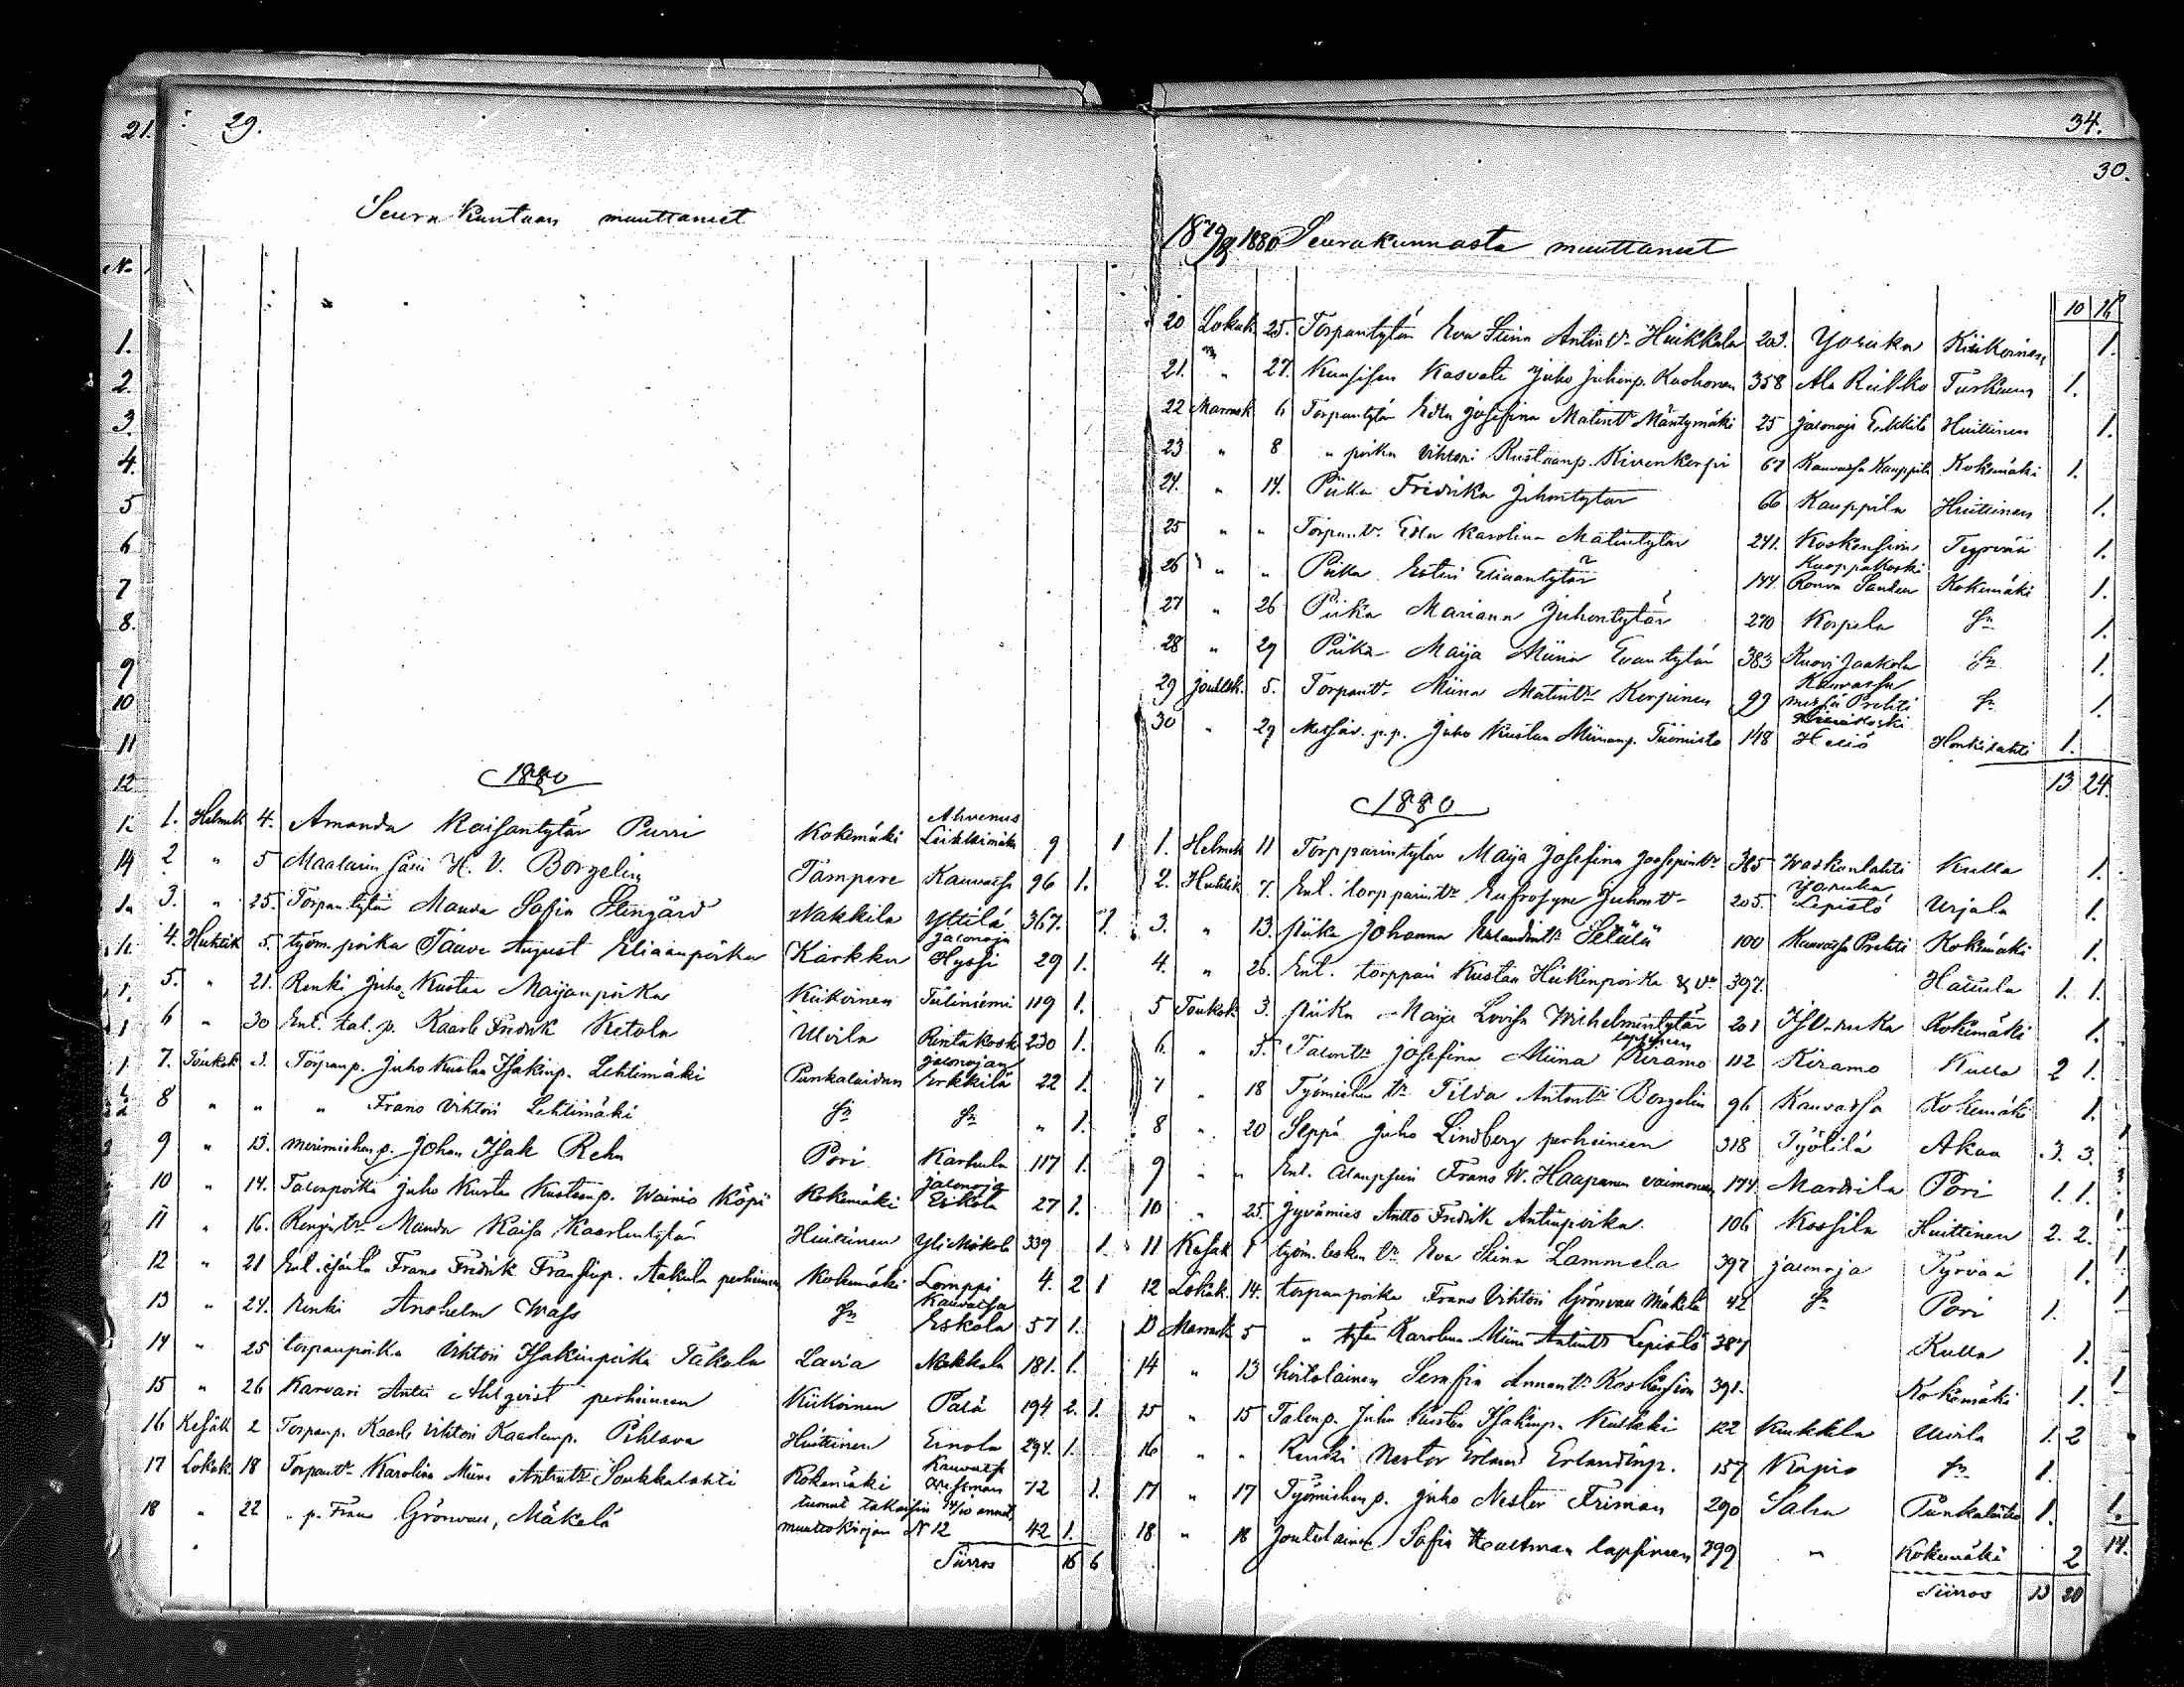 21. 29.
Seurakuntaan muuttaneet
No
1.
2.
3.
4.
5
6
7
8.
9
10
11
12
1880
1. Helmik 4. Amanda Kaisantytär Purri Kokemäki Ahvenus Leikkimäki 9 1
2 " 5 Maalarin H. V. Borgelin Tampere Kauvatsa 96 1.
3. " 25. Torpantytär Manda Sofia Stengård Nakkila Yttilä 367. 1
4. Huhtik 5. työm. poika Taave August Eliaanpoika Karkku Jalonoja Hyssi 29 1.
5. " 21. Renki Juho Kustaa Maijanpoika Kiikoinen Tuliniemi 119 1.
6 " 30 Ent. tal. p. Kaarle Fredrik Ketola Ulvila Rintakosk 230 1.
7. Toukok 3. Torpanp. Juho Kustaa Isakinp. Lehtimäki Punkalaidun Jalonojan Erkkilä 22 1.
8 " " " Frans Vihtori Lehtimäki Sn Sn " 1.
9 " 13. merimiehen p. Johan Isak Rehn Pori Karhula 117 1.
10 " 14. Talonpoika Juho Kustaa Kustaanp. Wainio Köpi Kokemäki Jalonoja Eskola 27 1.
11 " 16. Rengin tr Manda Kaisa Kaarlentytär Huittinen Yli Mökölä 339 1
12 " 21 Ent. isäntä Frans Fredrik Fransinp. Aakula perheineen Kokemäki Lomppi 4. 2 1
13 " 24. Renki Anshelm Wass Sn Kauvatsa Eskola 57 1.
14 " 25 torpanpoika Vihtori Isakinpoika Takala Lavia Makkala 181. 1.
15 " 26 Karvari Antti Ahlqvist perheineen Kiikoinen Palä 194 2. 1.
16 Kesäk 2 Torpanp. Kaarle Vihtori Kaarlenp. Pihlava Huittinen Einola 294. 1.
17 Lokak. 18 Torpantr Karolina Miina Antintr Soukkalahti Kokemäki Kauvatsa 72 1.
18 " 22 " p. Frans Grönvan, Mäkelä tuonut takaisin 14/10 annet. muuttokirjan N 12 42 1.
Siirros 15 6
34.
30.
1879 & 1880 Seurakunnasta muuttaneet
20 Lokak 25. Torpantytär Eva Stina Antintr Huikkala 203. Yoruka Kiikoinen 1.
21. " 27. Kuusisen Kasvati Juho Juhonp. Kuohonen 358 Ala Riikko Turkuun 1.
22 Marrask 6 Torpantytär Edla Josefina Matintr Mäntymäki 25 Jalonoja Erkkilä Huittinen 1.
23 " 8 " poika Vihtori Kustaanp. Kivenkorpi 67 Kauvatsa Kauppila Kokemäki 1.
24. " 14. Piika Fridrika Juhontytär 66 Kauppila Huittinen 1.
25 " " Torpantr. Edla Karolina Matintytär 241. Koskensivu Tyrvää 1.
26 " " Piika Esteri Eliaantytär 144. Kuoppakoski Rouva Sanden Kokemäki 1.
27 " 26 Piika Mariana Juhontytär 270 Korpela Sn 1.
28 " 29 Piika Maija Miina Evantytär 383 Kuovi Jaakola Sn 1.
29 Jouluk. 5. Torpantr Miina Matintr Korpinen 99 Kauvassa Prihti Sn 1.
30 " 29 Metsäv. p.p. Juho Kustaa Miinanp. Tuomisto 148 Heliö Honkilahti 1.
13 24.
1880
1. Helmik 11 Torpparintytär Maija Josefina Josefintr 385 Waskonlahti Kulla 1.
2. Huhtik 7. Ent. torpparintr Eufrosyne Juhontr 205. Yoruka Lepistö Urjala 1.
3. " 13. Piika Johanna Erlandintr Setälä 100 Kauvatsa Prihti Kokemäki 1.
4. " 26. Ent. torppari Kustaa Heikinpoika & vo 397. Hattula 1. 1.
5 Toukok 3. Piika Maija Lovisa Wilhelmintytär 201 Kokemäki 1.
6. " 5. Talontr Josefina Miina Kiramo lapsineen 112 Kiramo Kulla 2 1.
7 " 18 Työmiehen tr Tilda Antontr Borgelin 96 Kauvatsa Kokemäki 1.
8 " 20 Seppä Juho Lindberg perheineen 318 Työtilä Akaa 3. 3.
9 " " Ent. Frans W. Haapanen vaimoneen 174 Mardila Pori 1. 1.
10 " 25. Jyvämies Antto Fredrik Antinpoika 106 Kossila Huittinen 2. 2.
11 Kesäk 1 työm. lesken tr Eva Stina Lammela 397 Jalonoja Tyrvää 1.
12 Lokak. 14. torpanpoika Frans Vihtori Grönvan Mäkelä 42 Sn Pori 1.
13 Marrask 5 " tytär Karolina Miina Antintr Lepistö 387 Kulla 1.
14 " 13 Loistolainen Serafia Annantr Koskensivu 391. Kokemäki 1.
15 " 15 Talonp. Juho Kustaa Isakinp. Kukkki 122 Kukkla Ulvila 1. 2
16 " " Renki Nestor Erland Erlandinp. 157 Kupio Sn 1.
17 " 17 Työmiehen p. Juho Nestor Friman 290 Salu Punkalaidun 1.
18 " 18 Joutolainen Sofia Heurman lapsineen 399 " Kokemäki 2
Siirros 13 20